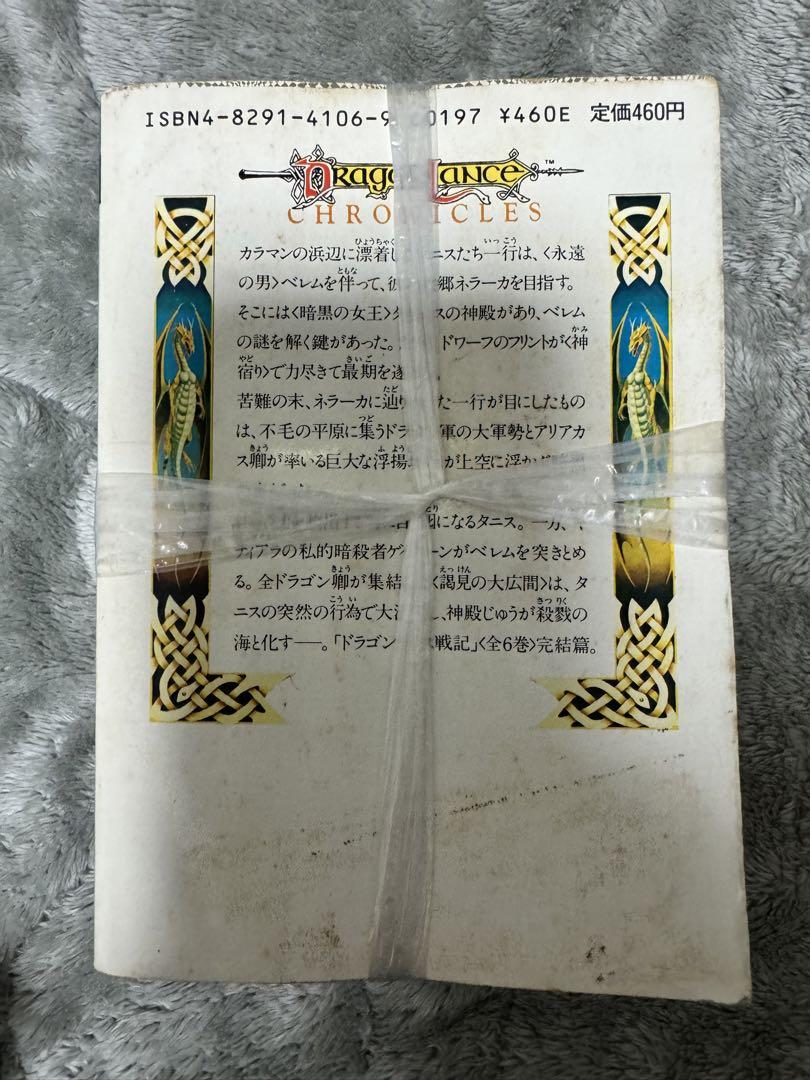 ISBN4-8291-4106-9 0197 ¥460E 定価460円
DRAGONLANCE™
CHRONICLES
カラマンの浜辺に漂着し ニスたち一行は、〈永遠
の男〉ベレムを伴って、彼 郷ネラーカを目指す。
そこには〈暗黒の女王〉 スの神殿があり、ベレム
の謎を解く鍵があった。 ドワーフのフリントが〈神
宿り〉で力尽きて最期を遂
苦難の末、ネラーカに辿り た一行が目にしたもの
は、不毛の平原に集うドラ 軍の大軍勢とアリアカ
ス卿が率いる巨大な浮揚 が上空に浮かぶ
になるタニス。一方、キ
ティアラの私的暗殺者ゲ ーンがベレムを突きとめ
る。全ドラゴン卿が集結 〈謁見の大広間〉は、タ
ニスの突然の行為で大 し、神殿じゅうが殺戮の
海と化す——。「ドラゴン ス戦記」〈全6巻〉完結篇。